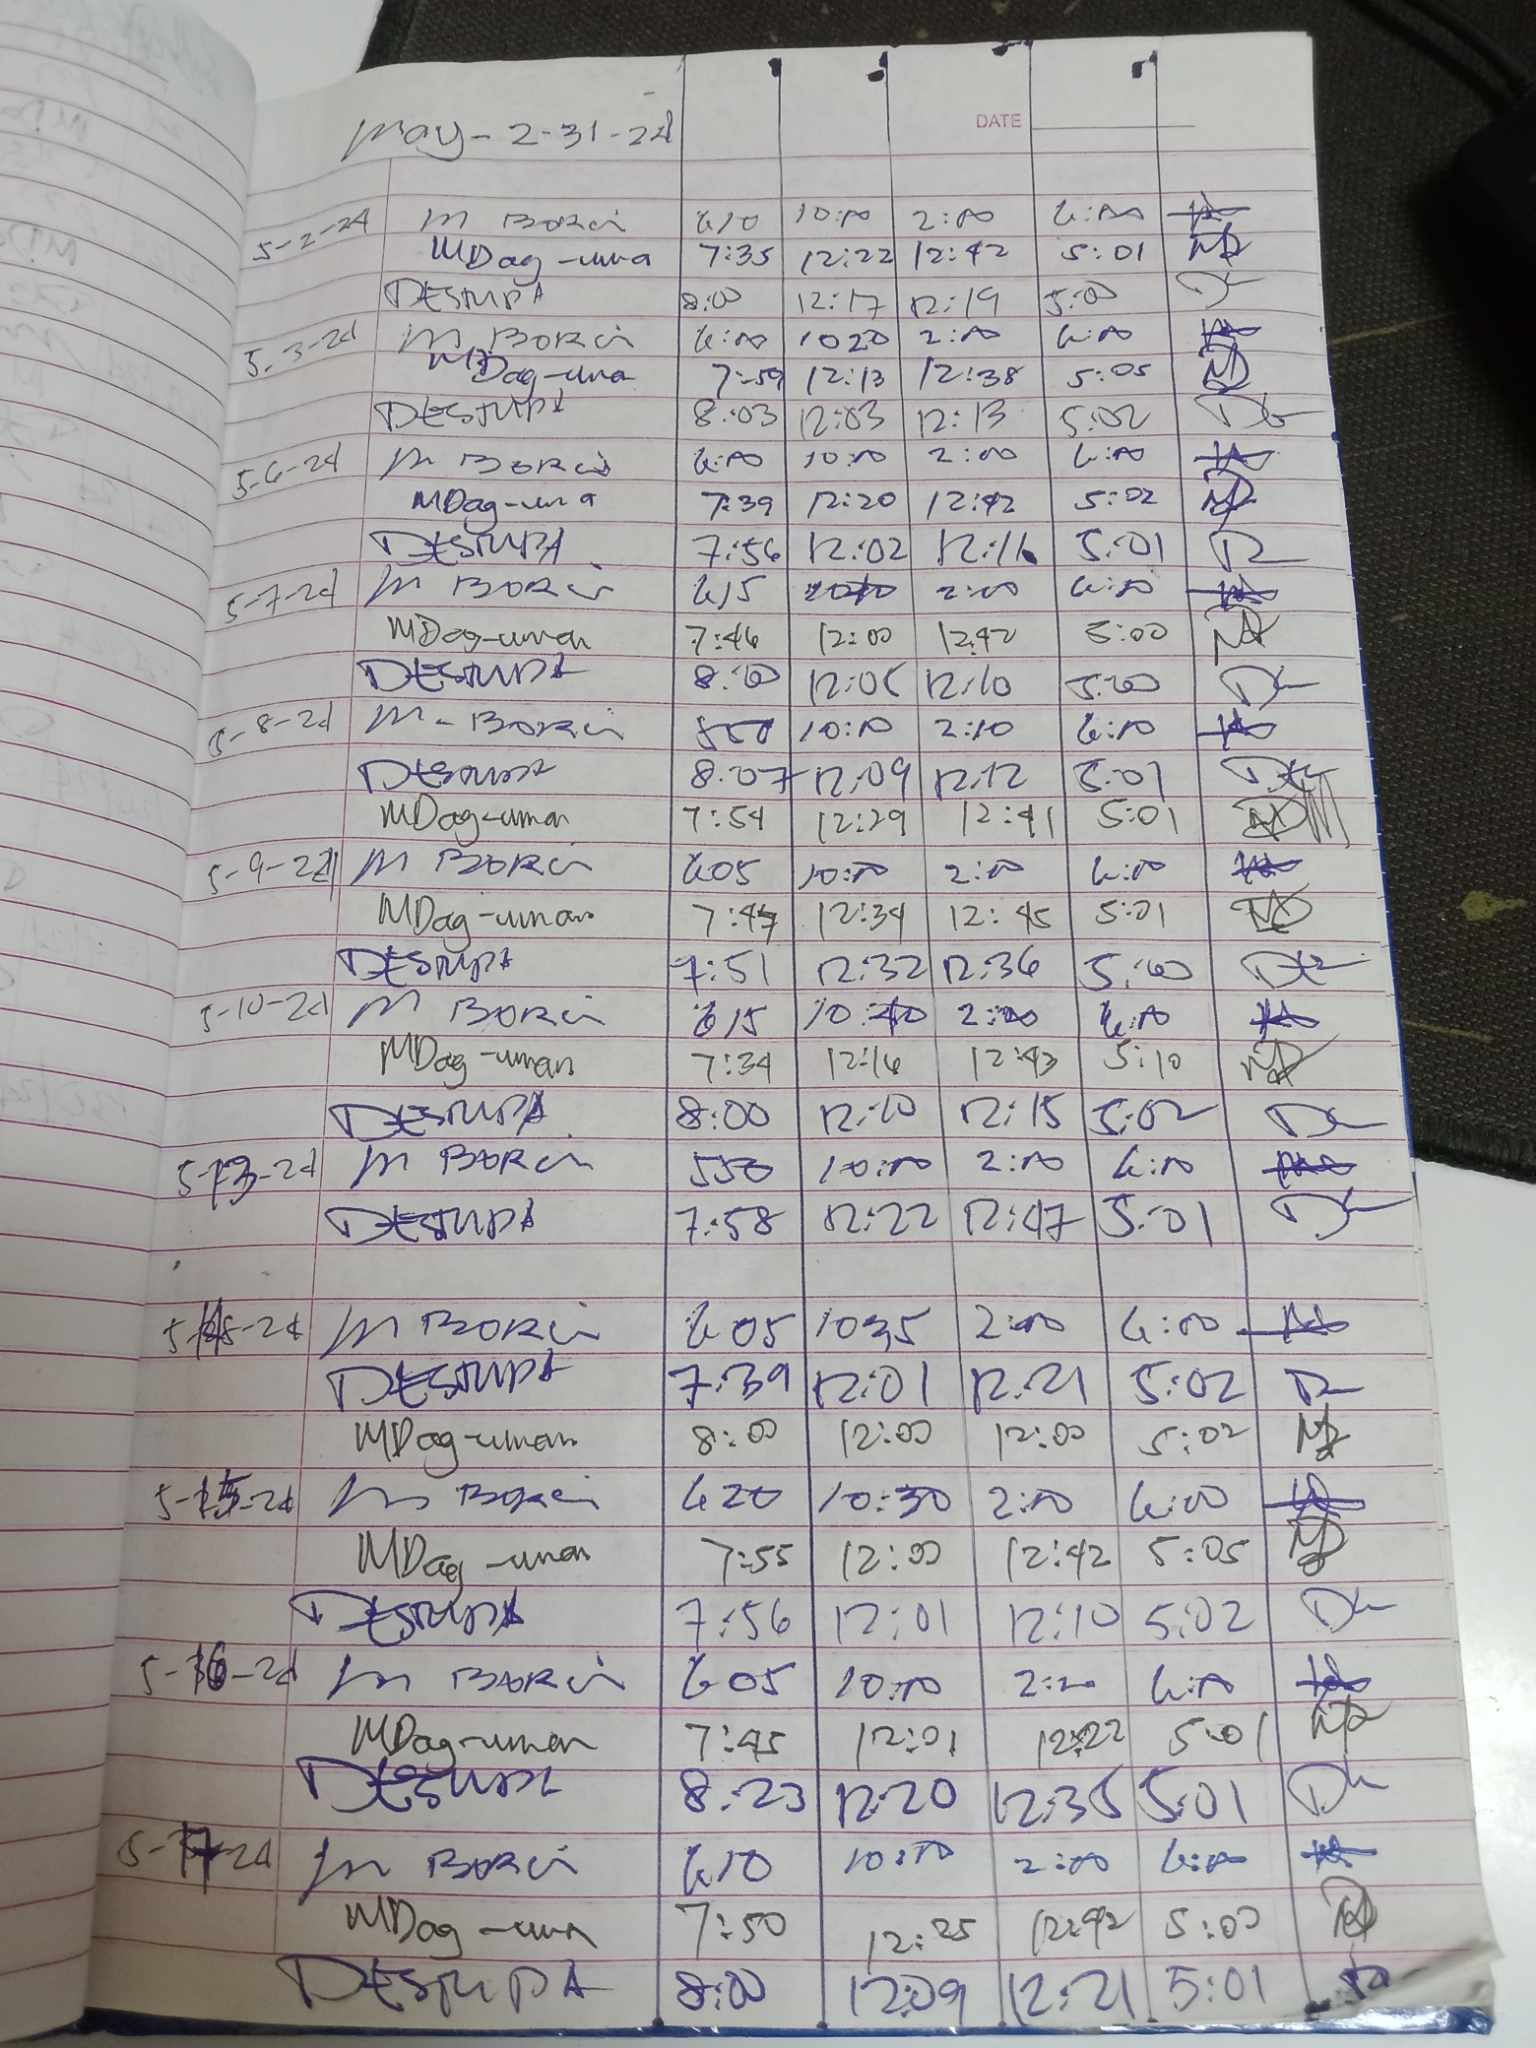 May-2-31-24
DATE
5-2-24 M Borci 610 10:00 2:00 6:00
MDag-una 7:35 12:22 12:42 5:01
DESTUPA 8:00 12:17 12:19 5:00
5-3-24 M Borci 6:00 1020 2:00 6:00
MDag-una 7:59 12:13 12:38 5:05
DESTUPA 8:03 12:03 12:13 5:02
5-6-24 M Borci 6:00 10:00 2:00 6:00
MDag-una 7:39 12:20 12:42 5:02
DESTUPA 7:56 12:02 12:16 5:01
5-7-24 M Borci 615 2:00 6:00
MDag-uman 7:46 12:00 1242 5:00
DESTUPA 8:00 12:05 12:10 5:00
5-8-24 M-Borci 550 10:00 2:10 6:00
DESTUPA 8:07 12:09 12:12 5:01
MDag-uman 7:54 12:29 12:41 5:01
5-9-24 M Borci 605 10:00 2:00 6:00
MDag-uman 7:47 12:34 12:45 5:01
DESTUPA 7:51 12:32 12:36 5:00
5-10-24 M Borci 615 2:00 6:00
MDag-uman 7:34 12:16 12:43 5:10
DESTUPA 8:00 12:10 12:15 5:02
5-13-24 M Borci 550 10:00 2:00 6:00
DESTUPA 7:58 12:22 12:47 5:01
M Borci 605 1035 2:00 6:00
DESTUPA 7:39 12:01 12:21 5:02
MDag-uman 8:00 12:00 12:00 5:02
5-15-24 M Borci 620 10:30 2:00 6:00
MDag-uman 7:55 12:00 12:42 5:05
DESTUPA 7:56 12:01 12:10 5:02
5-16-24 M Borci 605 10:00 6:00
MDag-uman 7:45 12:01 12:22 5:01
DESTUPA 8:23 12:20 12:35 5:01
5-17-24 M Borci 610 10:00 2:00 6:00
MDag-una 7:50 12:25 12:42 5:00
DESTUPA 8:00 12:09 12:21 5:01